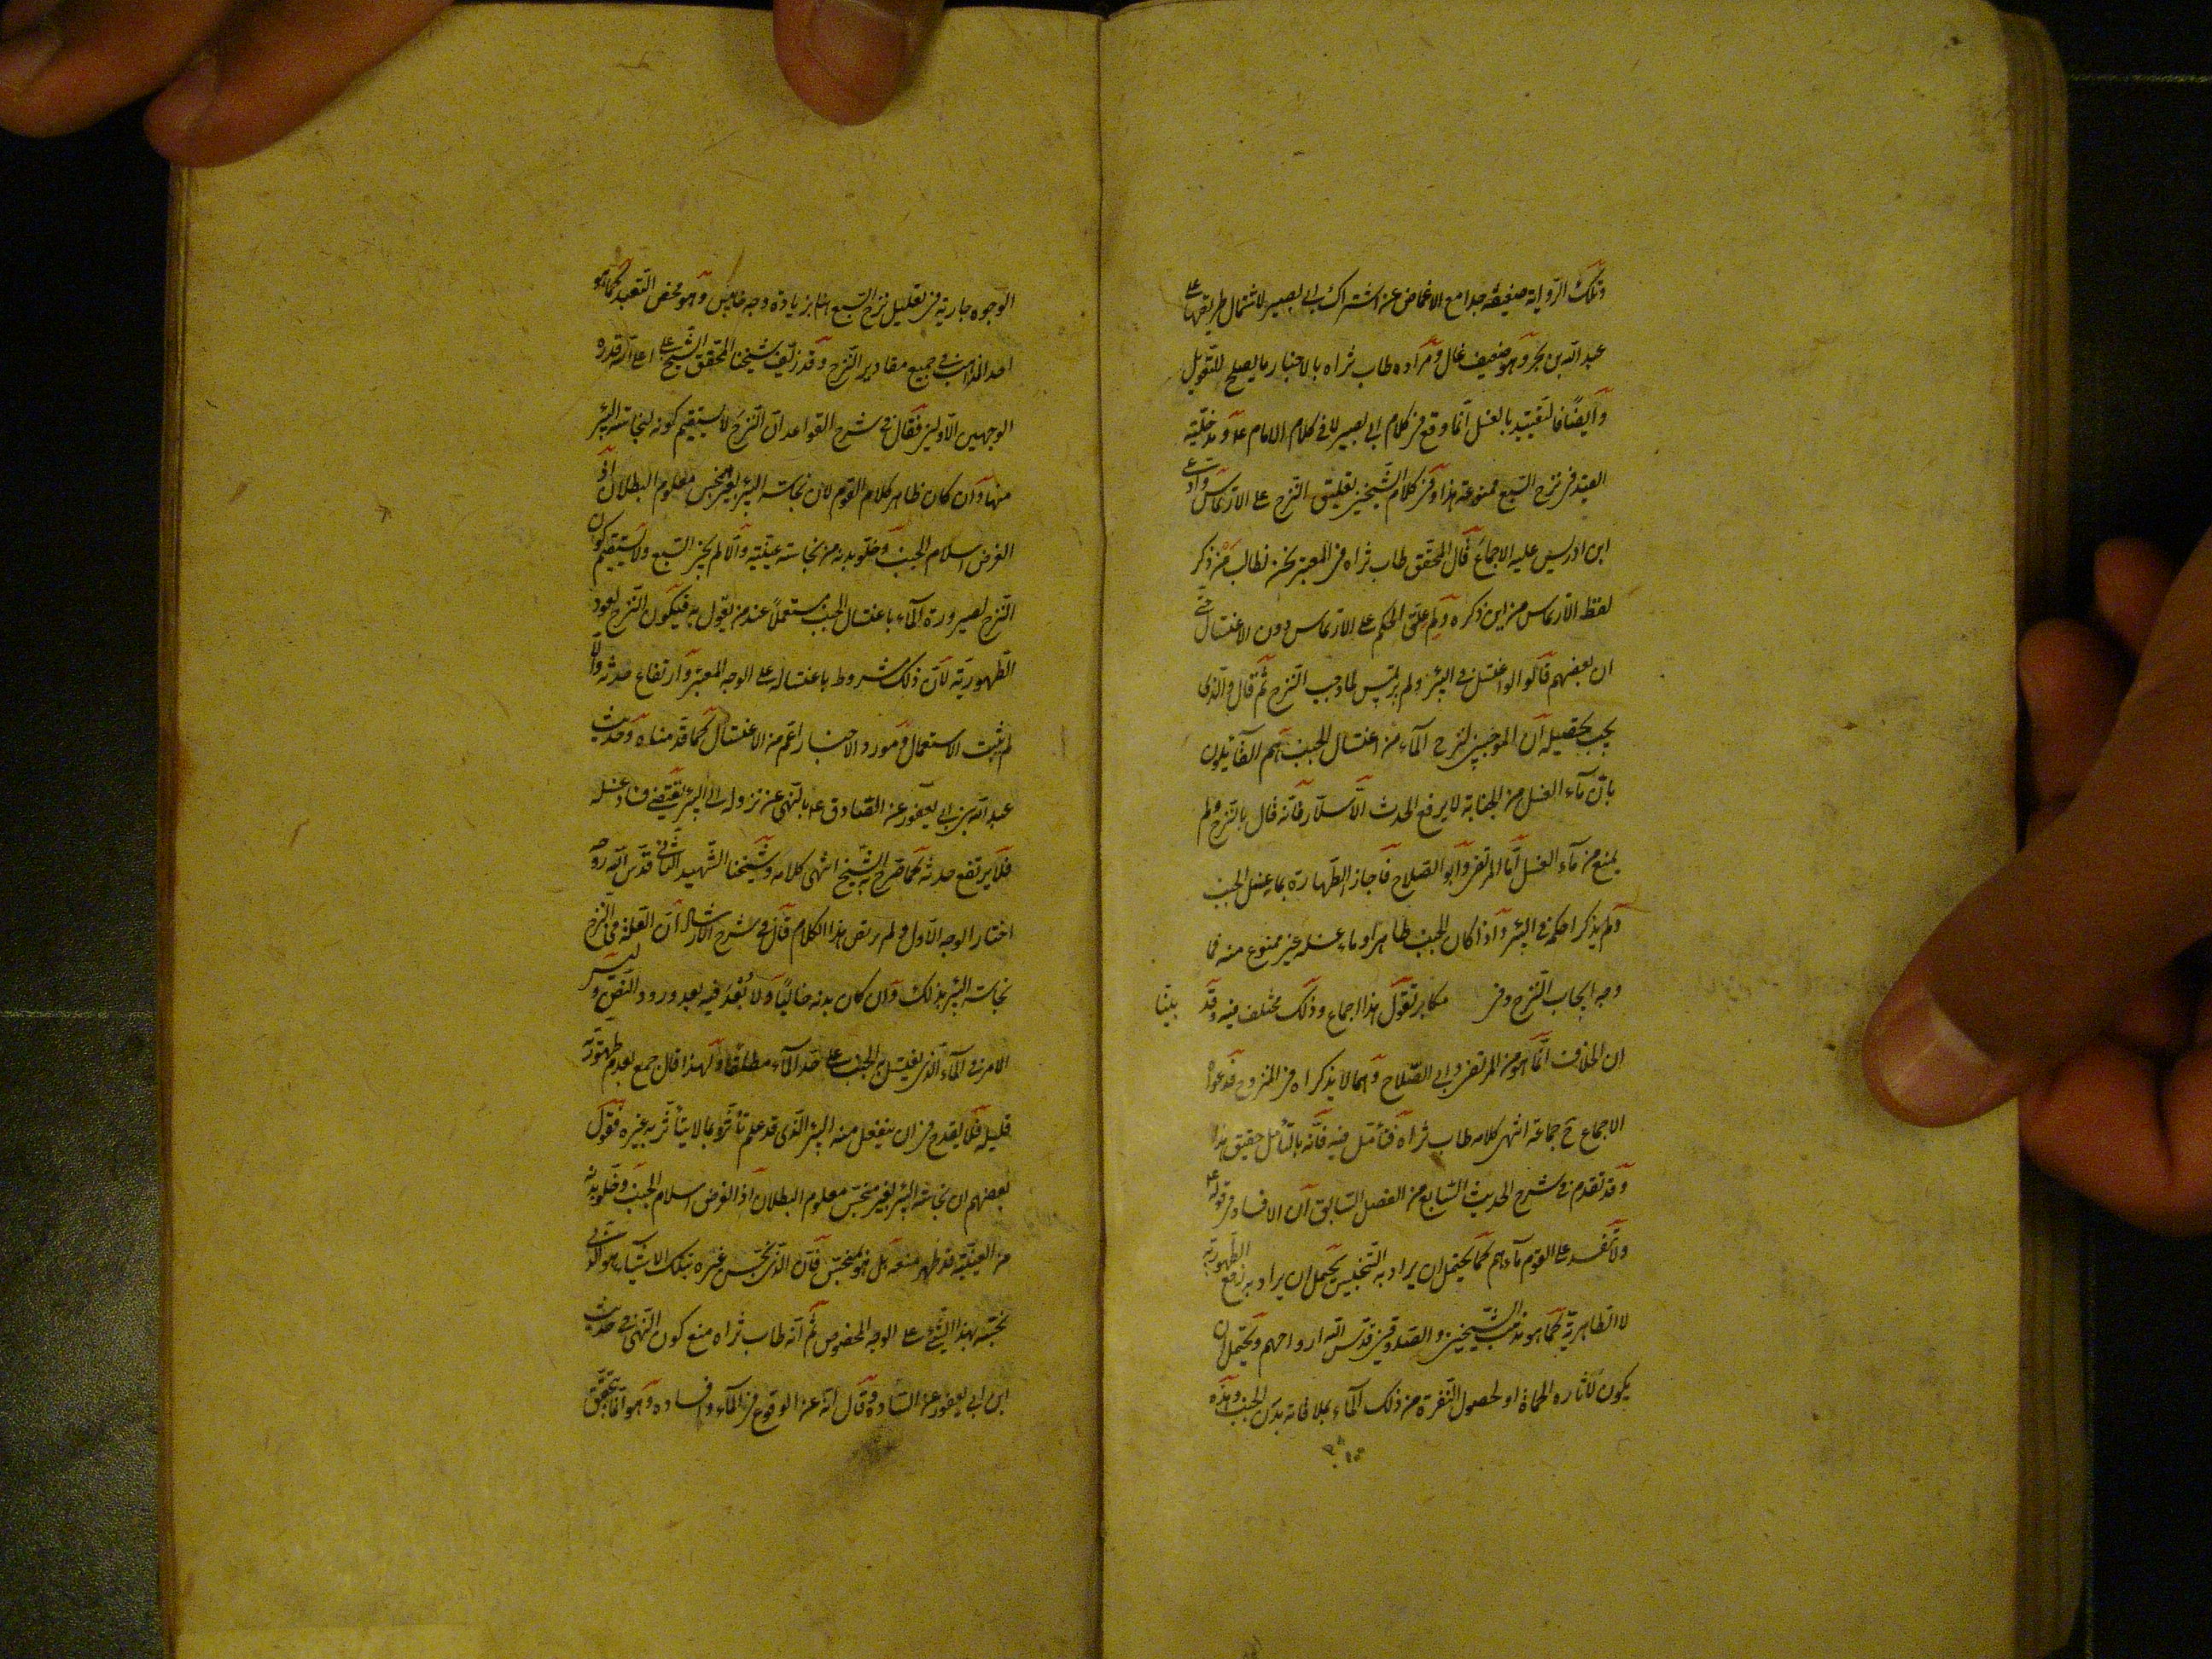 وتلك الرواية ضعيفة جدا مع الاغماض عن اشتراك ابي بصير لاشتمال طريقها على
عبد الله بن بحر وهو ضعيف غال ومراده طاب ثراه بالاخبار ما يصلح للتعويل
وايضًا فالتقييد بالغسل انما وقع في كلام ابي بصير لا في كلام الامام ع ومدخلية
القيد في نزح السبع ممنوعة هذا وفي كلام الشيخين تعليق النزح على الارتماس وادعى
ابن ادريس عليه الاجماع قال المحقق طاب ثراه في المعتبر نحن نطالب من ذكر
لفظ الارتماس من اين ذكره ولم علق الحكم على الارتماس دون الاغتسال حتى
ان بعضهم قالوا لو اغتسل في البئر ولم يرتمس لما وجب النزح ثم قال والذي
يجب تحصيله ان الموجبين لنزح الماء من اغتسال الجنب هم القائلون
بان ماء الغسل من الجنابة لا يرفع الحدث الا سلار فانه قال بالنزح ولم
يمنع من ماء الغسل اما المرتضى وابو الصلاح فاجاز الطهارة بماء غسل الجنب
ولم يذكرا حكمه في البئر واذا كان الجنب طاهرا وماء غسله غير ممنوع منه فما
وجه ايجاب النزح وفي مكابر تقول هذا اجماع وذلك مختلف فيه وقد بينا
ان الخلاف انما هو من المرتضى وابي الصلاح وهما لا يذكراه في المنزوح فدعوى
الاجماع ح حماقة انتهى كلامه طاب ثراه فتأمل فيه فانه بالتأمل حقيق هذا
وقد تقدم في شرح الحديث السابع من الفصل السابق ان الافساد في قوله ع
ولا تفسد على القوم ماءهم كما يحتمل ان يراد به التنجيس يحتمل ان يراد به رفع الطهورية
لا الطاهرية كما هو مذهب الشيخين والصدوقين قدس الله ارواحهم ويحتمل ان
يكون لاثارة الحماة او لحصول النفرة من ذلك الماء بملاقاته بدن الجنب وهذه
الوجوه جارية في تعليل نزح السبع هنا بزيادة وجه خامس وهو محض التعبد كما هو
احد المذاهب في جميع مقادير النزح وقد زيف شيخنا المحقق الشيخ علي اعلى الله قدره
الوجهين الاولين فقال في شرح القواعد ان النزح لا يستقيم كونه لنجاسة البئر
منها وان كان ظاهر كلام القوم لان نجاسة البئر بغير منجس معلوم البطلان اذ
الغرض اسلام الجنب وخلو بدنه من نجاسة عينية والا لم يجز السبع ولا يستقيم كون
النزح لصيرورة الماء باغتسال الجنب مستعملاً عند من يقول به فيكون النزح لعود
الطهورية لان ذلك مشروط باغتساله على الوجه المعتبر وارتفاع حدثه والا
لم يثبت الاستعمال ومورد الاخبار اعم من الاغتسال كما قدمناه وحديث
عبد الله بن ابي يعفور عن الصادق ع بالنهي عن نزوله الى البئر يقتضي فساد غسله
فلا يرتفع حدثه كما صرح به الشيخ انتهى كلامه وشيخنا الشهيد الثاني قدس الله روحه
اختار الوجه الاول ولم يرتض هذا الكلام قال في شرح الارشاد ان العلة في النزح
نجاسة البئر بذلك وان كان بدنه خاليًا ولا بُعْدَ فيه بعد ورود النص وليس
الامر في الماء الذي يغتسل به الجنب على حد الماء مطلقا ولهذا قال جمع بعدم طهوريته
قليله فلا يقدح في ان ينفعل منه البئر الذي قد علم تأثرها بما لا يتأثر به غيره فقول
بعضهم ان نجاسة البئر بغير منجس معلوم البطلان اذ الفرض اسلام الجنب وخلو بدنه
من العينية قد ظهر منعه بل هو منجس فان الذي نجس غيره بتلك الاشياء هو الذي
نجسه بهذا الشيء على الوجه المخصوص ثم انه طاب ثراه منع كون النهي في حديث
ابن ابي يعفور عن العبادة وقال انه عن الوقوع في الماء وافساده وهو انما يتحقق